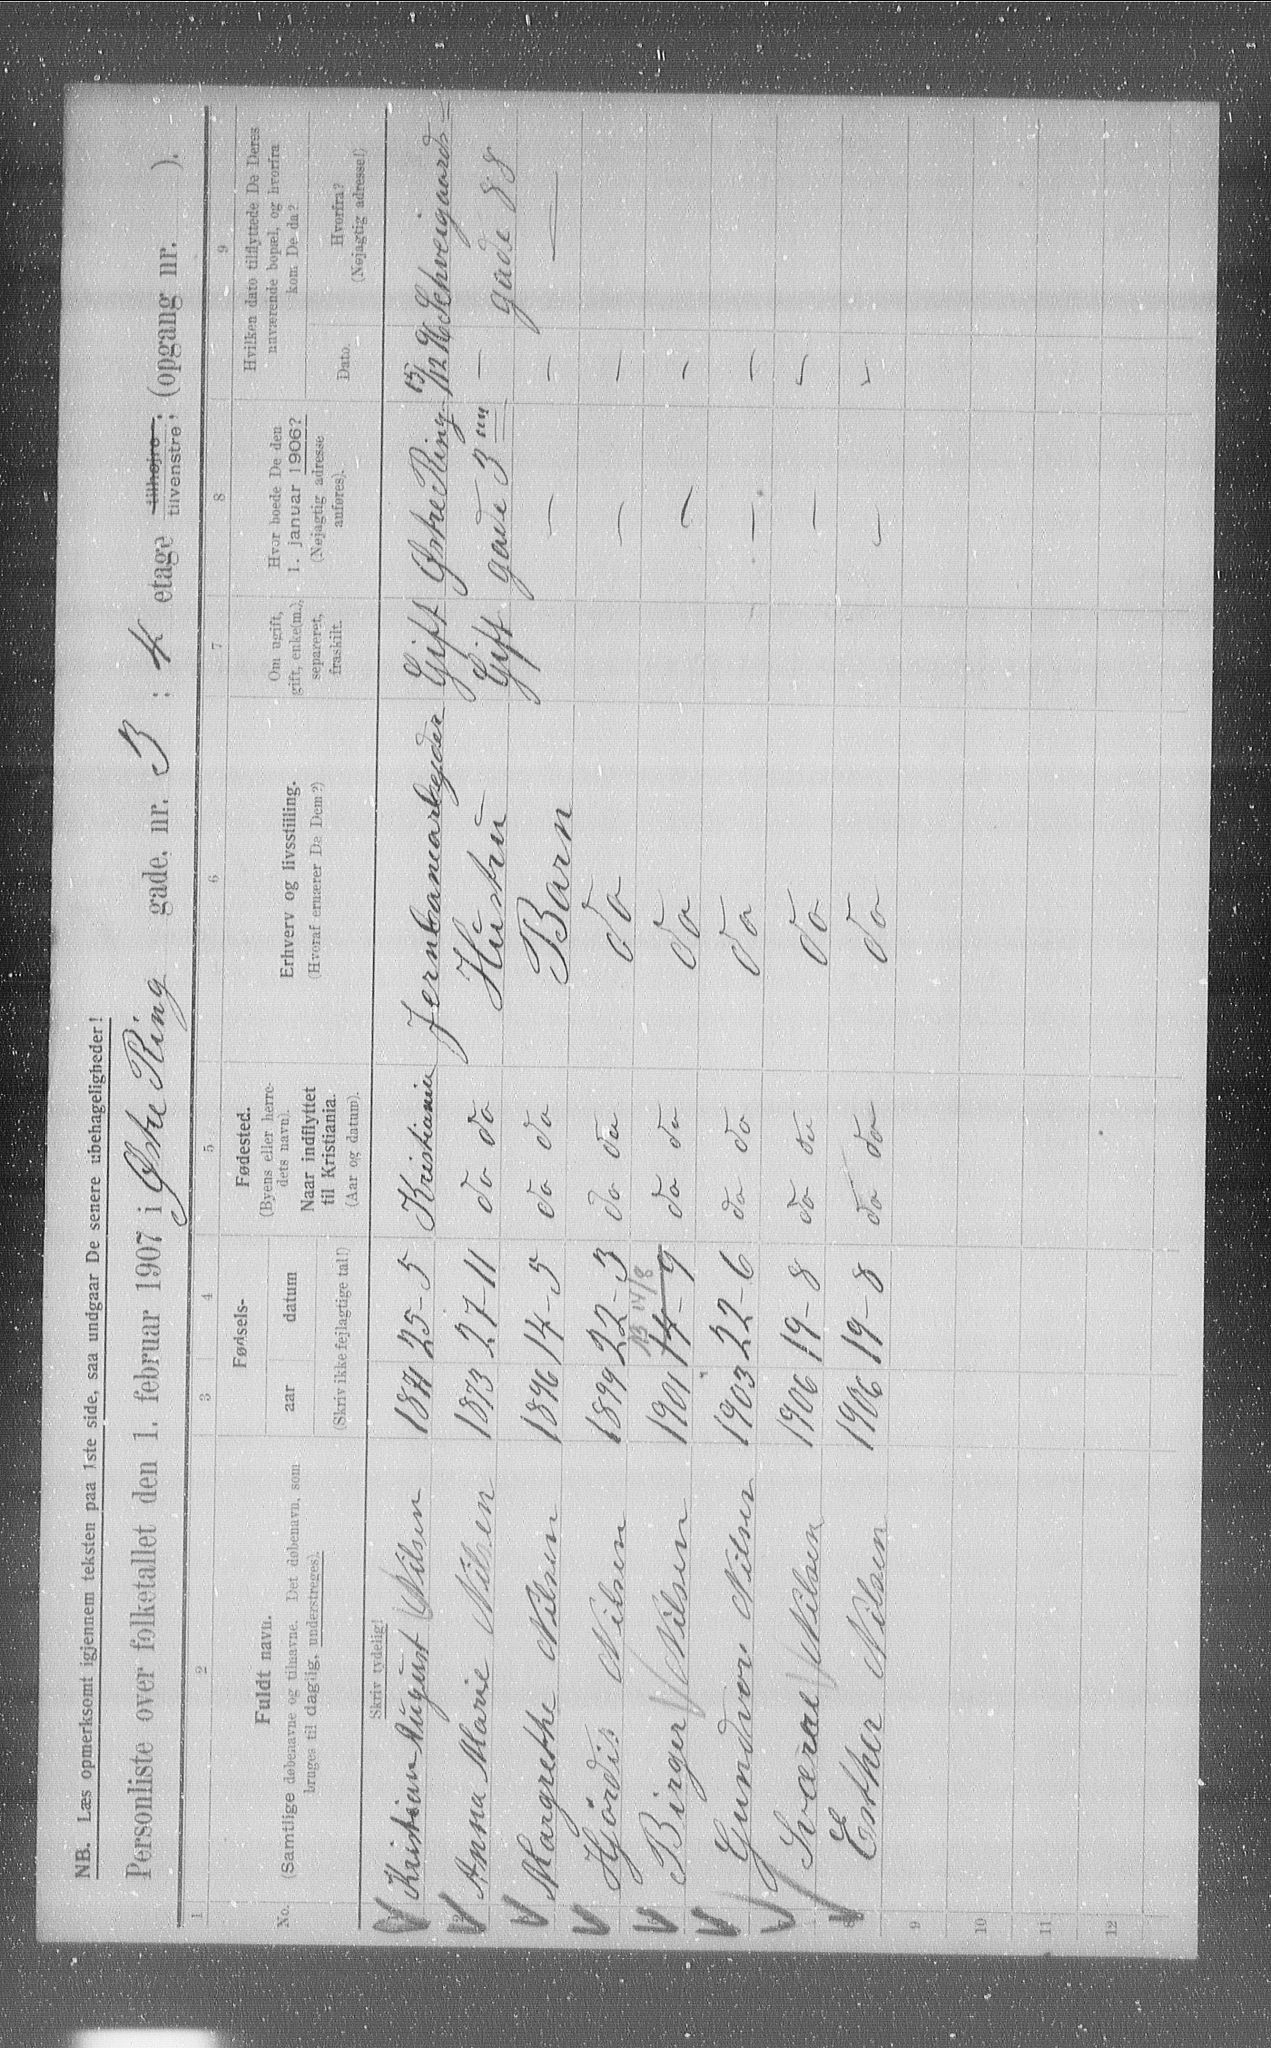 NB. Læs opmerksomt igjennem teksten paa 1ste side, saa undgaar De senere ubehageligheder!
Personliste over folketallet den 1. februar 1907 i Østre Ring gade, nr. 3 ; 4 etage tilhøjre tilvenstre; (opgang nr. ).
1 2 3 4 5 6 7 8 9
No. Fuldt navn. (Samtlige døbenavne og tilnavne. Det døbenavn, som bruges til daglig, understreges).
Fødsels- aar datum
(Skriv ikke fejlagtige tal!)
Fødested. (Byens eller herredets navn). Naar indflyttet til Kristiania. (Aar og datum).
Erhverv og livsstilling. (Hvoraf ernærer De Dem?)
Om ugift, gift, enke(m.), separeret, fraskilt.
Hvor boede De den 1. januar 1906? (Nøjagtig adresse anføres).
Hvilken dato tilflyttede De Deres nuværende bopæl, og hvorfra kom De da?
Dato. Hvorfra? (Nøjagtig adresse!)
Skriv tydelig!
Kristian August Nilsen 1871 25-5 Kristiania Jernbanearbejder Gift Østre Ring- 15/12 06 Schweigaards-
2 Anna Marie Nilsen 1873 27-11 do do Hustru Gift gade 3 — gade 88
Margrethe Nilsen 1896 14-5 do do Barn — —
Hjördis Nilsen 1899 22-3 do do do — —
13 14/8
Birger Nilsen 1901 14-9 do do do — —
Gundvor Nilsen 1903 22-6 do do do — —
Sverre Nilsen 1906 19-8 do do do — —
8 Esther Nilsen 1906 19-8 do do do — —
9
10
11
12